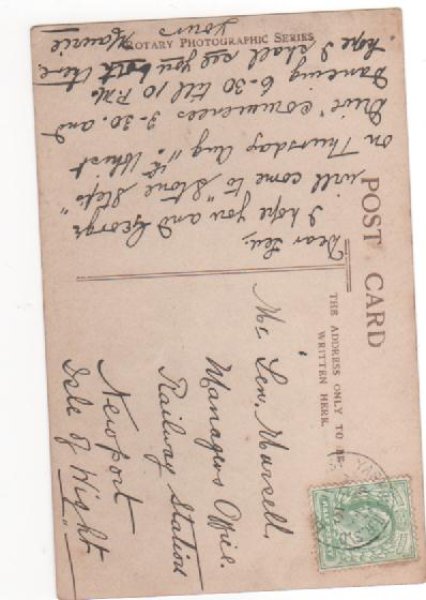 ROTARY PHOTOGRAPHIC SERIES
POST CARD
THE ADDRESS ONLY TO BE
WRITTEN HERE.
Dear Len,
I hope you and George
will come to "Stone Steps"
on Thursday Aug "Whist
Drive" commences 3-30. and
Dancing 6-30 till 10 P.M.
hope I shall see you both there.
Yours
Mr. Len. Mursell.
Managers Office.
Railway Station
Newport
Isle of Wight